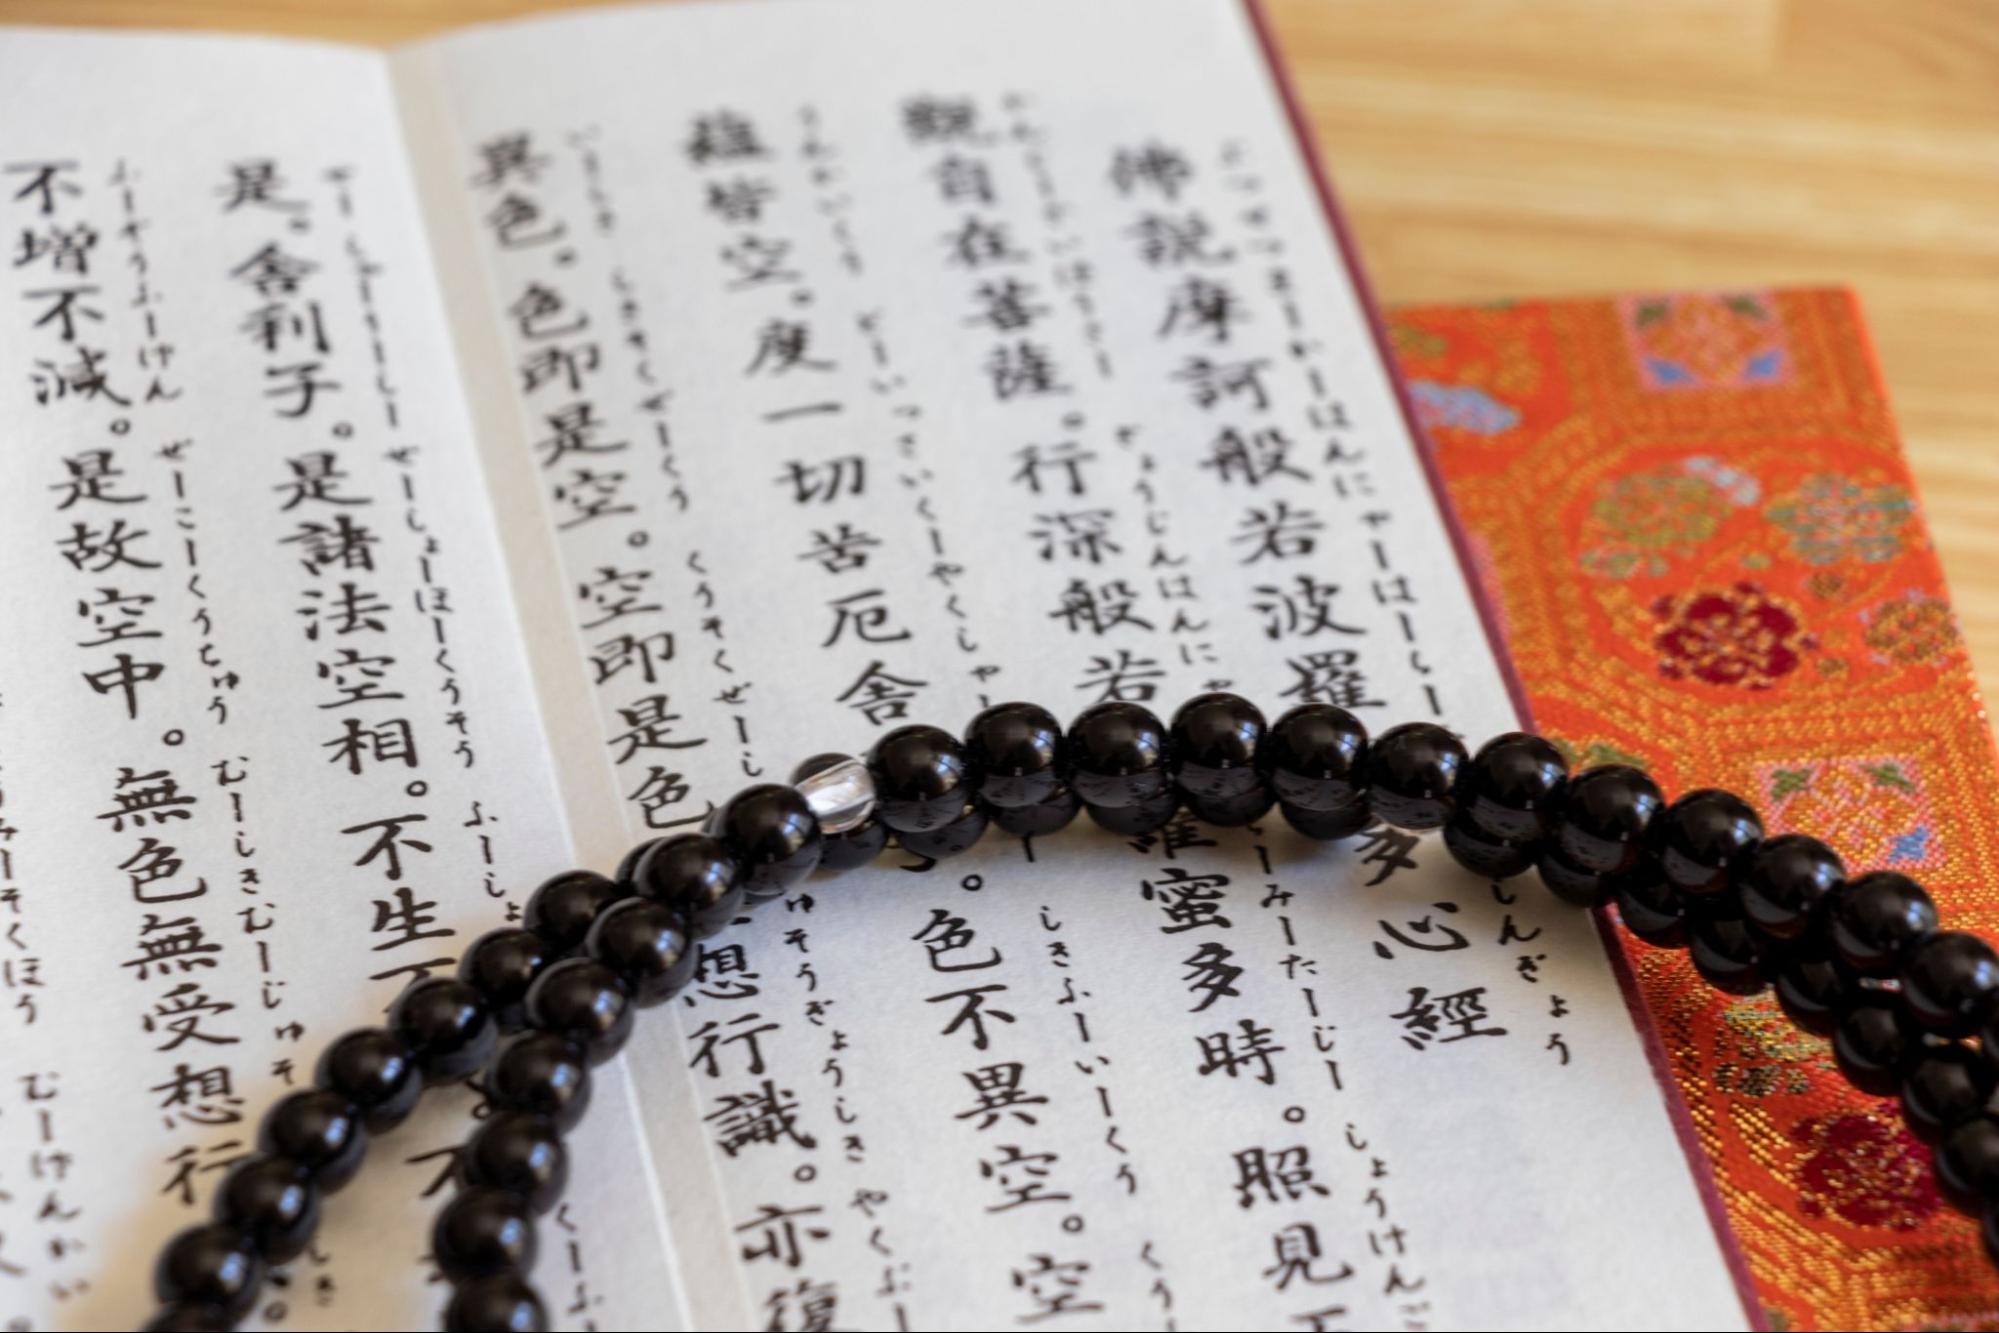 佛説摩訶般若波羅多心經
ぶっせつまーかーはんにゃーはーらー しんぎょう
觀自在菩薩。行深般若羅蜜多時。照見五
かんじーざいぼうさー ぎょうじんはんにゃ ーみーたーじー しょうけんご
蘊皆空。度一切苦厄舍子。色不異空。空
うんかいくう どーいっさいくーやくしゃー ー しきふーいーくう くう
異色。色即是空。空即是色想行識。亦復
いーしき しきそくぜーくう くうそくぜーし ゅそうぎょうしき やくぶー
是。舍利子。是諸法空相。不生不
ぜー しゃーりーしー ぜーしょーほーくうそう ふーしょ くーふ
不増不減。是故空中。無色無受想行
ふーぞうふーげん ぜーこーくうちゅう むーしきむーじゅそ しき
みーそくほう むーげんかい